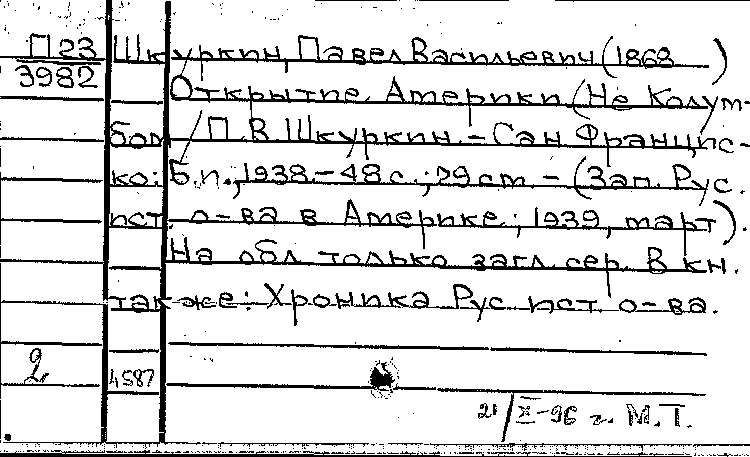 П23 Шкуркин, Павел Васильевич (1868 )
3982
Открытие Америки (Не Колум-
бом / П.В. Шкуркин. – Сан Францис-
ко: Б.и., 1938 – 48 с.; 29 cm – (Зап. Рус.
ист. о-ва в Америке; 1939, март).
На обл. только загл. сер. В кн.
также: Хроника Рус. ист. о-ва.
2 4587
21/X-96 г. М.Т.